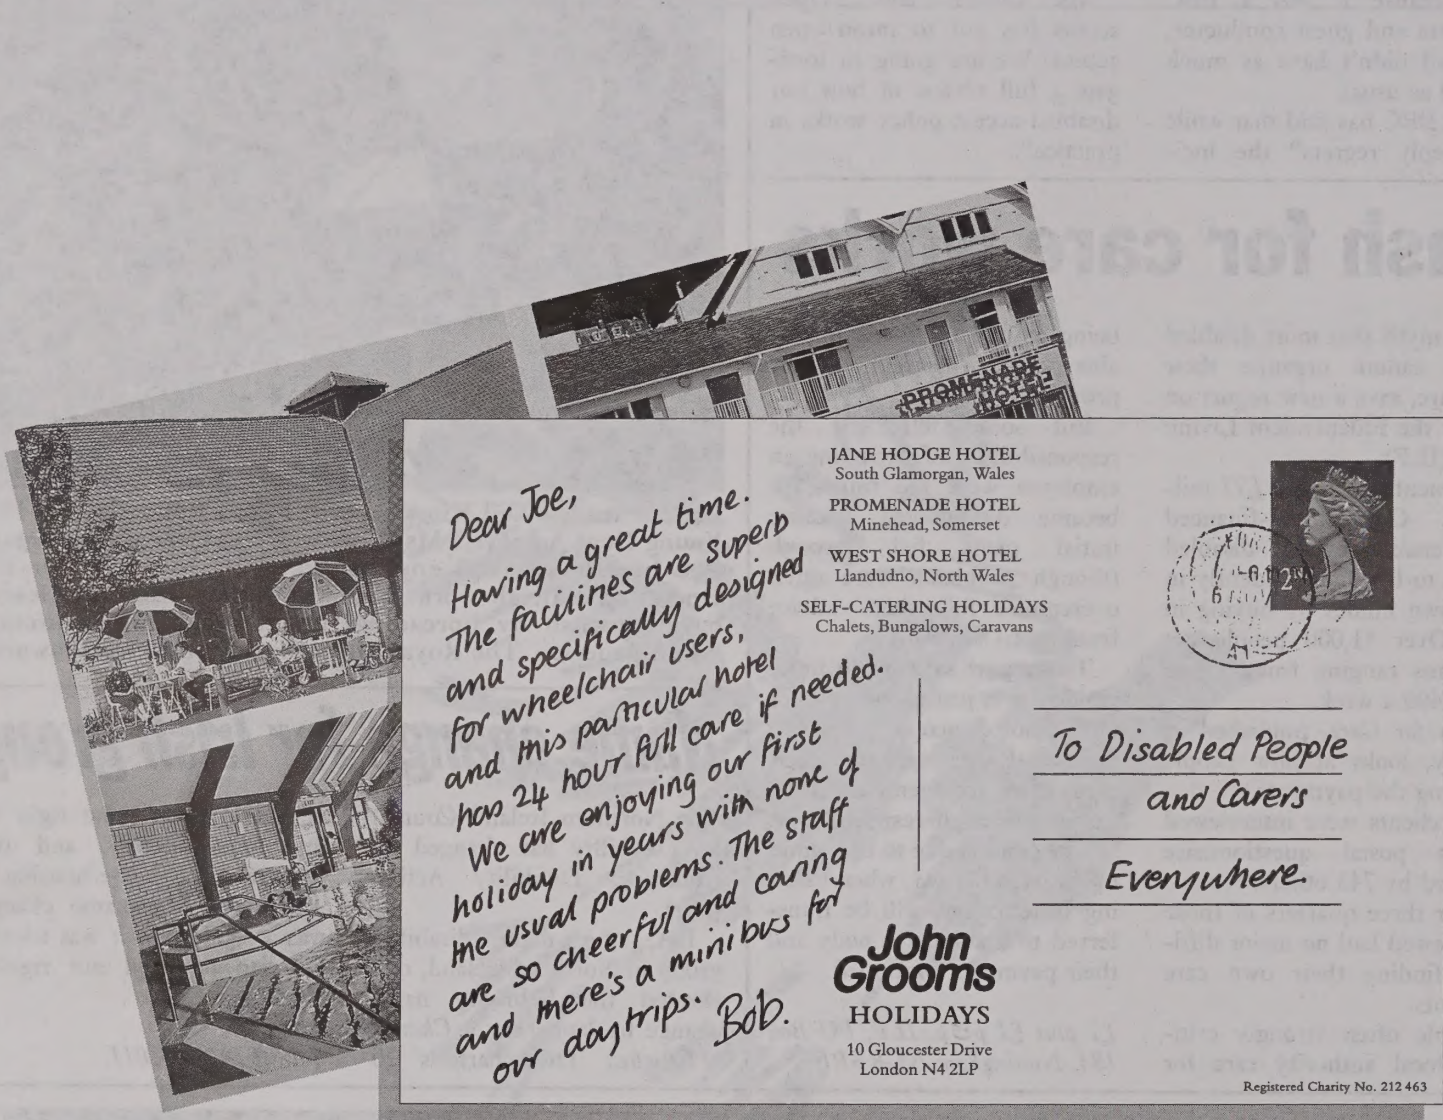 PROMENADE
HOTEL
Dear Joe,
Having a great time.
The facilities are superb
and specifically designed
for wheelchair users,
and this particular hotel
has 24 hour full care if needed.
We are enjoying our first
holiday in years with none of
the usual problems. The staff
are so cheerful and caring
and there's a minibus for
our daytrips. Bob.
JANE HODGE HOTEL
South Glamorgan, Wales
PROMENADE HOTEL
Minehead, Somerset
WEST SHORE HOTEL
Llandudno, North Wales
SELF-CATERING HOLIDAYS
Chalets, Bungalows, Caravans
2ND
To Disabled People
and Carers
Everywhere.
John
Grooms
HOLIDAYS
10 Gloucester Drive
London N4 2LP
Registered Charity No. 212 463